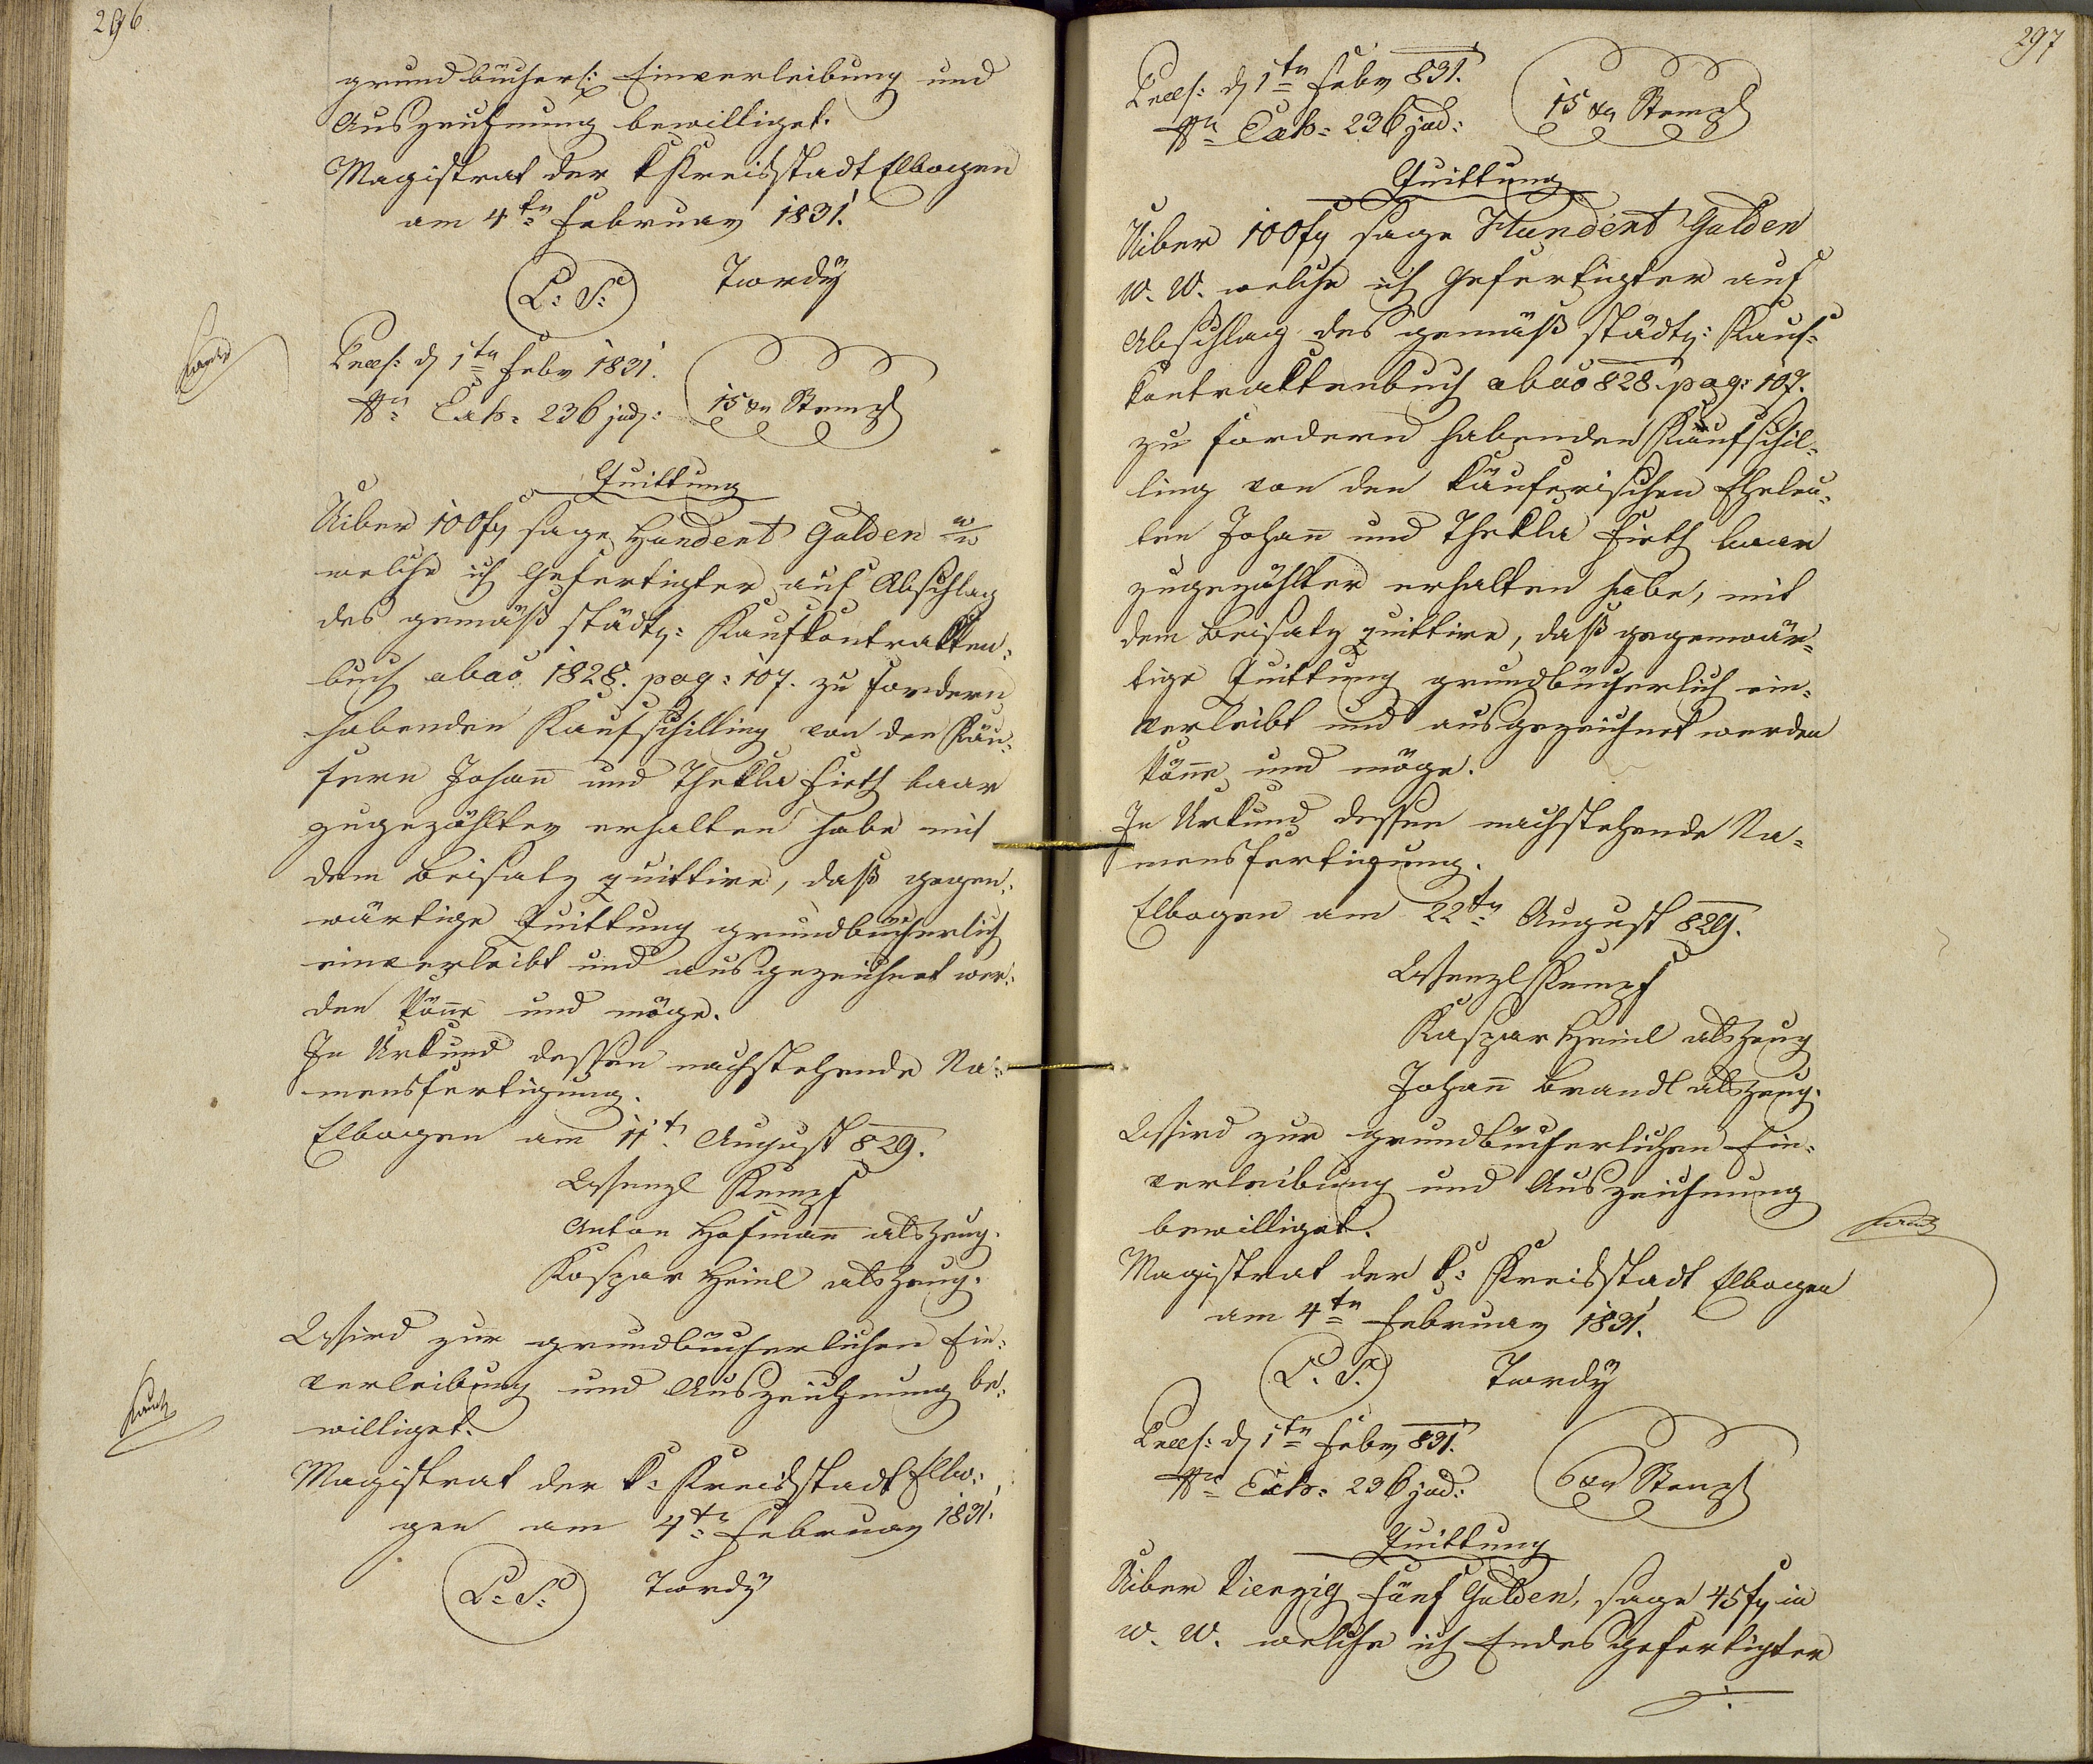 296.
grundbücherl: Einverleibung und
Auszeichnung bewilliget.
Magistrat der k Kreisstadt Elbogen
am 4tn Februar 1831.
L: S: Twrdÿ
Praes: d 1tn Febr 1831.
Exh: 236 jud: 15 xr Stempl
Quittung
Uiber 100 f sage Hundert Gulden w/w
welche ich Gefertigter auf Abschlag
des gemäß städt: Kaufkontrakten-
buch abao 1828. pag: 107. zu fordern
habenden Kaufschilling von den Käu-
fern Johann und Thekla Fieth baar
zugezählter erhalten habe mit
dem Beisatz quittire, daß gegen-
wärtige Quittung grundbücherlich
einverleibt und ausgezeichnet wer-
den könne und möge.
In Urkund dessen nachstehende Na-
mensfertigung.
Elbogen am 11t August 829.
Wenzl Kempf
Anton Hofmann als Zeug.
Kaspar Heinl als Zeug.
Wird zur grundbücherlichen Ein-
verleibung und Auszeichnung be-
williget.
Magistrat der k: Kreisstadt Elbo-
gen am 4tn Februar 1831.
L: S: Twrdÿ
297
Praes: d 1tn Febr 831.
Exh: 236 jud: 15 xr Stempl
Quittung
Uiber 100 f sage Hundert Gulden
W. W. welche ich Gefertigter auf
Abschlag des gemäß städt: Kauf-
kontraktenbuch abao 828. pag: 107.
zu fordern habenden Kaufschil-
ling von den käuferischen Eheleu-
ten Johann und Thekla Fieth baar
zugezählter erhalten habe, mit
dem Beisatz quittire, daß gegenwär-
tige Quittung grundbücherlich ein-
verleibt und ausgezeichnet werden
könne und möge.
In Urkund dessen nachstehende Na-
mensfertigung.
Elbogen am 22tn August 829.
Wenzl Kempf
Kaspar Heinl als Zeug
Johann Brandl als Zeug.
Wird zur grundbücherlichen Ein-
verleibung und Auszeichnung
bewilliget.
Magistrat der k: Kreisstadt Elbogen
am 4tn Februar 1831.
L. S. Twrdÿ
Praes: d 1tn Febr 831.
Exh: 236 jud: 6 xr Stempl
Quittung
Uiber Vierzig fünf Gulden, sage 45 f in
W. W. welche ich Endesgefertigter